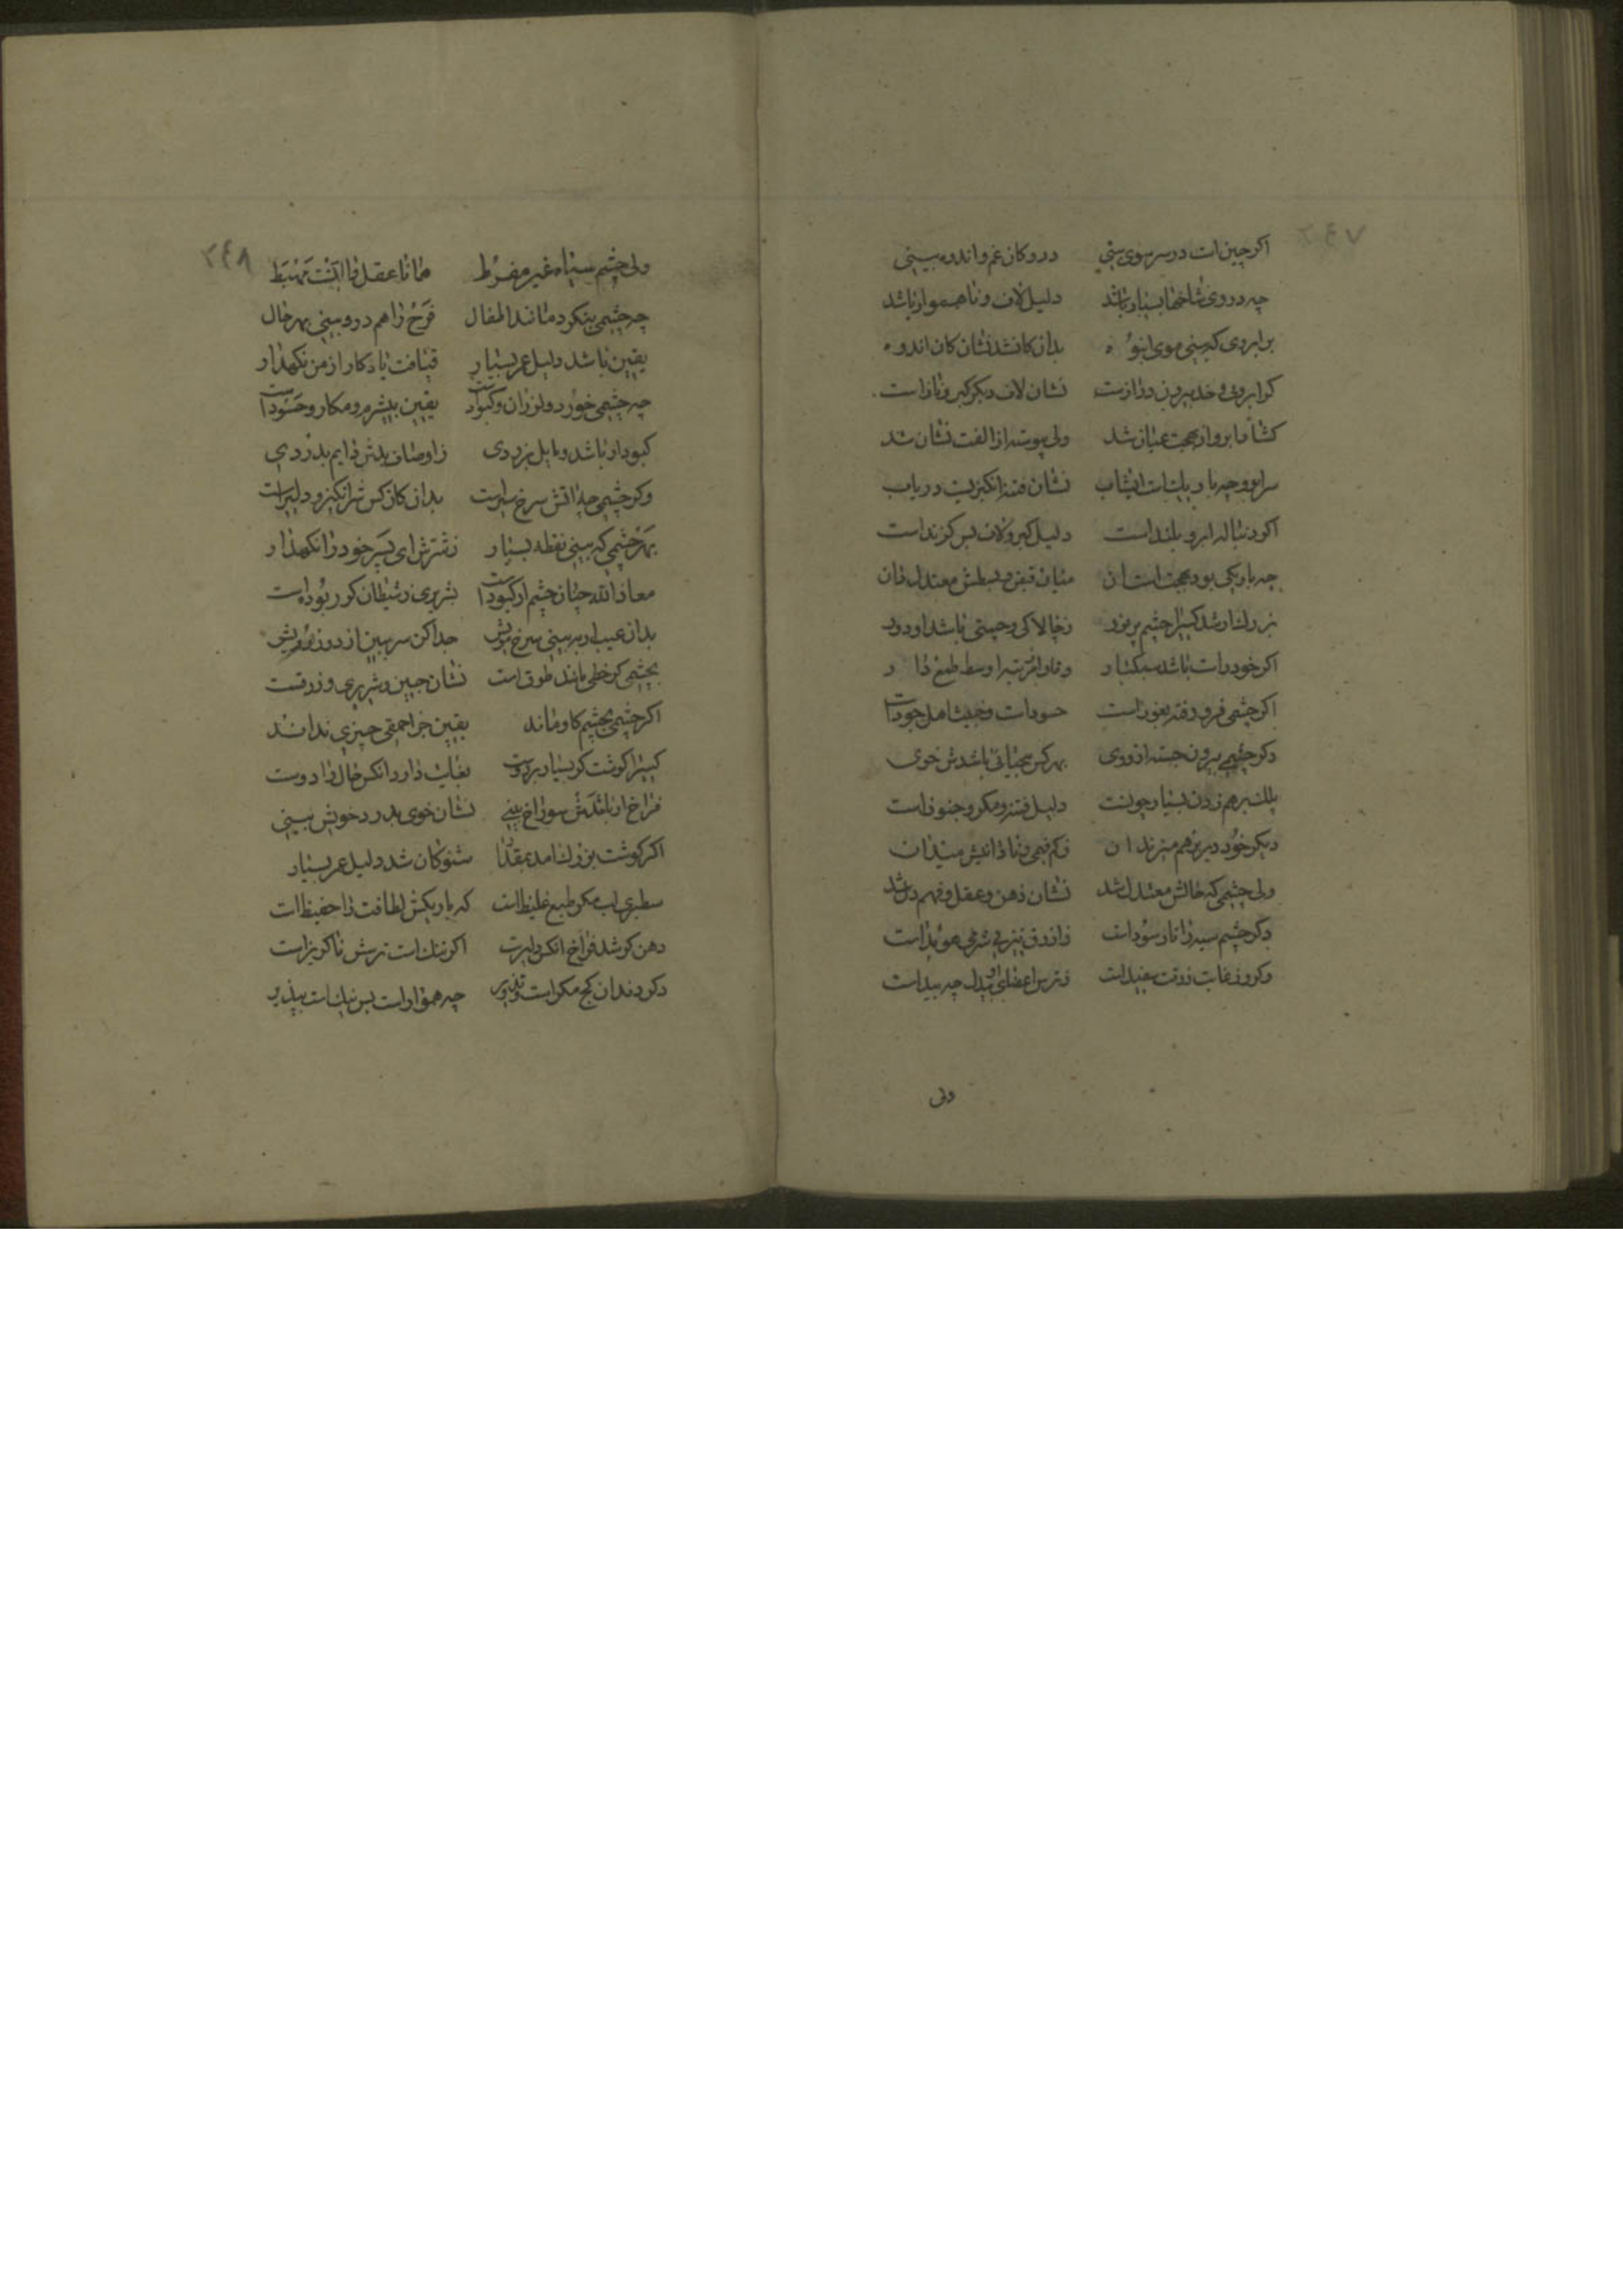 ۲۴۷
اکر چین است در سر سوی بینی درو کان غم و اندوه بینی
چه در وی شاخها بسیار باشد دلیل لاف و ناهموار باشد
بر ابروی که بینی موی انبوه بدان کان شد نشان کان اندوه
کر ابروی خد بیرون دراز ست نشان لاف دیکر کبر و ناز است
کشاد ابرو از عجب عیان شد ولی پیوسته از الفت نشان شد
سر ابرو چه باریک است نشان فتنه انکیزیست دریاب
اکر دنباله ابرو بلند است دلیل کبر و لاف بس کزند است
چه باریکی بود عجب است ان میان قبض و بسطش معتدل دان
بزرک ار شد کسیرا چشم پر نور ز چالاکی و چستی باشد او دور
اکر خورد است باشد سبکسار وسط طبع دار
اکر چشمی فرو رفته بغور است حسود است و خبیث اهل
وکر چشمی بیرون جسته از روی بهر کس بیحیائی باشدش خوی
پلک برهم زدن بسیار چونست دلیل فتنه و مکر و جنونست
دیکر خود دیر برهم میزند ان ز کم فهمی و نادانیش میدان
ولی چشمی که حالش معتدل شد نشان ذهن و عقل و فهم دل شد
وکر چشم سیه زاثار سوداست
وکر وز غایت زرقت سفید است ز ترس اعضای او چه بید است
ولی
۲۴۸
ولی چشم سیاه غیر مفرط همانا عقل را
چه چشمی بنکرد مانند اطفال فرح را هم درو بینی بهر حال
یقین باشد دلیل عمر بسیار قیافت یادکار از من نکهدار
چه چشمی خورد و لرزان و کبود است یقین بیشرم و مکار و حسود است
کبود ار باشد و مایل بزردی ز اوصاف بدش دایم
وکر چشمی چه اتش سرخ بدان کان کس شر انکیز و دلیر است
بهر چشمی که بینی نقطه بسیار ز شرش ای پسر خود را نکهدار
معاذالله چنان چشم ار کبود است شریری ز شیطان کو ربوده است
بدان عیب ار ببینی سرخ مویش جدا کن سر ببین از دور رویش
بچشمی کر خطی مانند طوق است نشان جبن و شریری و زرقست
اکر چشمی بچشم کاو ماند یقین جز احمقی چیزی نداند
کسیرا کوشت کر بسیار بر روست بغایت دارد انکس مال را دوست
فراخ ار باشدش سوراخ بینی نشان خوی بد در خویش بینی
اکر کوشت بزرک امد بمقدار شنو کان شد دلیل عمر بسیار
سطبری لب مکو طبع غلیظ است که باریکیش لطافت را حفیظ است
دهن کر شد فراخ انکس دلیرست اکر تنک است ترسش ناکزیر است
وکر دندان کج مکر است و تزویر چه هموار است بس نیک است بپذیر